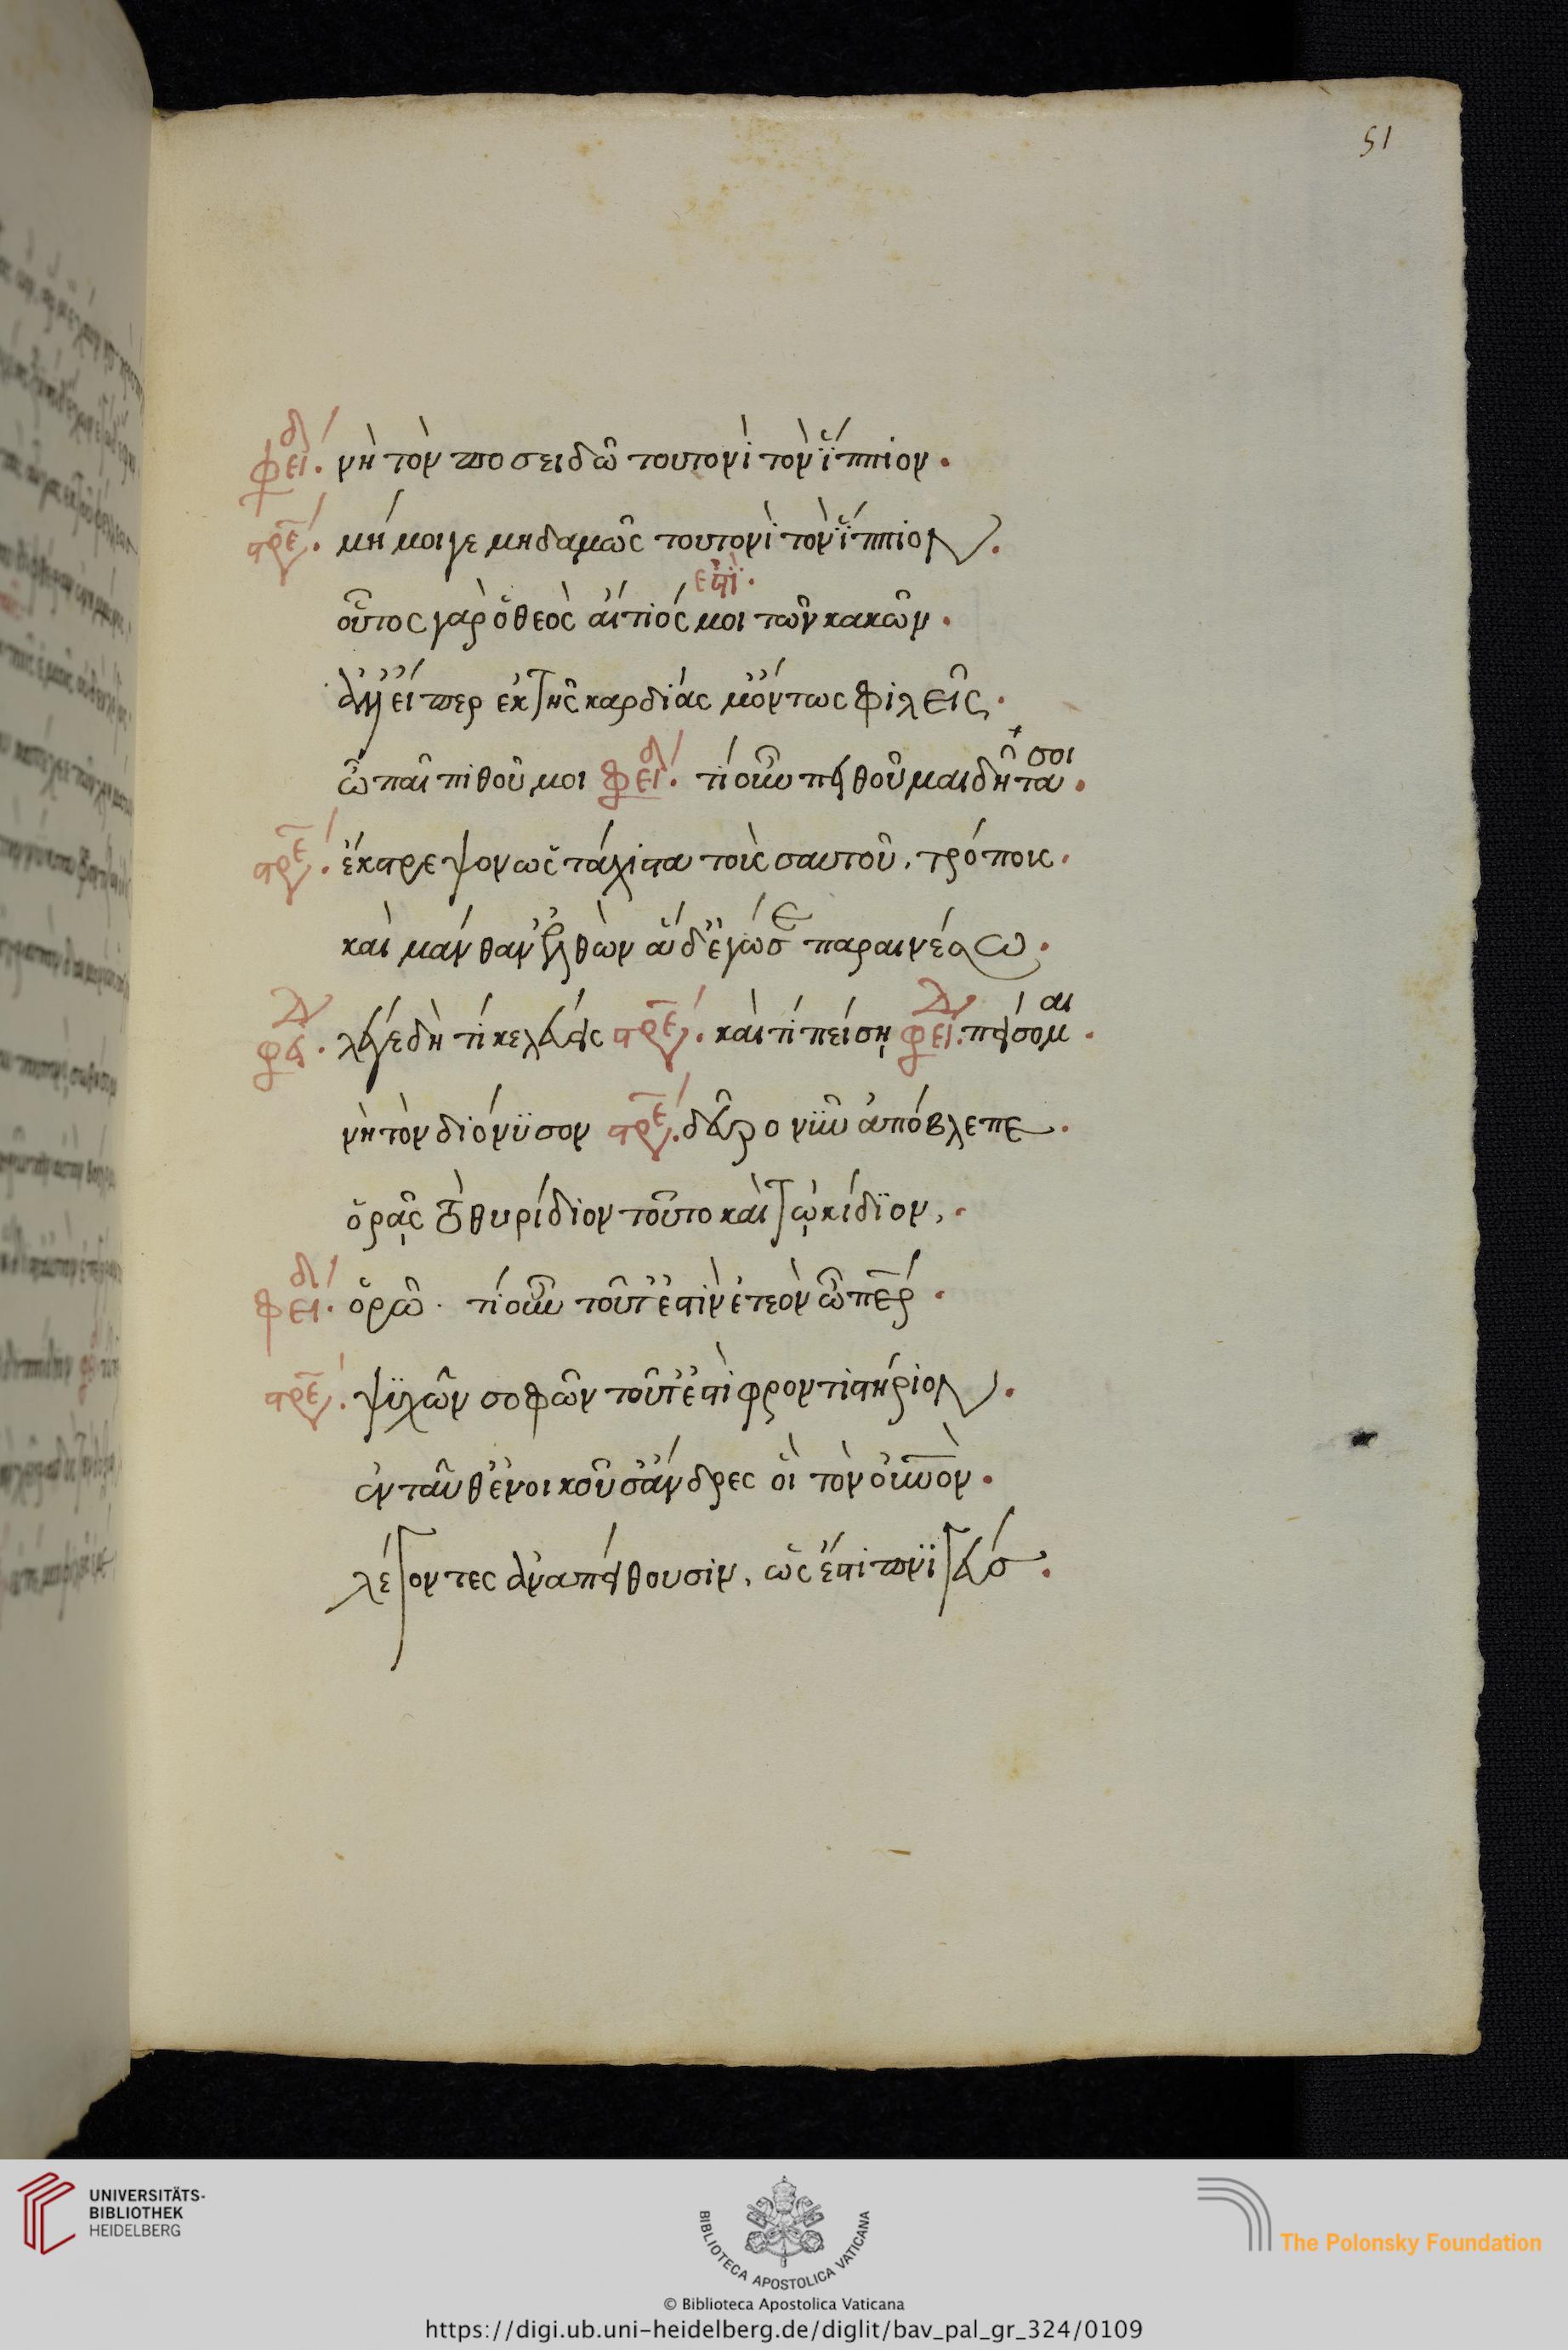 51
φειδ. νὴ τὸν ποσειδῶ τουτονὶ τὸν ἵππιον.
στρεψ. μή μοιγε μηδαμῶς τουτονὶ τὸν ἵππιον.
ἐστὶ.
οὗτος γὰρ ὁ θεὸς αἴτιός μοι τῶν κακῶν.
ἀλλ' εἴπερ ἐκ τῆς καρδίας μ' ὄντως φιλεῖς.
σοι
ὦ παῖ πιθοῦ μοι φειδ. τί οὖν πείθουμαι δῆτα.
στρεψ. ἔκστρεψον ὡς τάχιστα τοὺς σαυτοῦ, τρόποις.
καὶ μάνθαν' ἐλθὼν ἃ δ' ἐγώ σε παραινέσω.
φειδ. λέγε δὴ τί κελεύεις στρεψ. καὶ τί πείση φειδ. πείσομαι.
νὴ τὸν διόνυσον στρεψ. δεῦρο νῦν ἀπόβλεπε.
ὁρᾷς τὸ θυρίδιον τοῦτο καὶ τᾠκίδιον,.
φειδ. ὁρῶ. τί οὖν τοῦτ' ἐστὶν ἐτεὸν ὦ πάτερ.
στρεψ. ψυχῶν σοφῶν τοῦτ' ἐστὶ φροντιστήριον.
ἐνταῦθ' ἐνοικοῦσ' ἄνδρες οἳ τὸν οὐρανὸν.
λέγοντες ἀναπείθουσιν, ὡς ἔστι πνιγεύς.
UNIVERSITÄTS-
BIBLIOTHEK
HEIDELBERG
BIBLIOTECA APOSTOLICA VATICANA
The Polonsky Foundation
© Biblioteca Apostolica Vaticana
https://digi.ub.uni-heidelberg.de/diglit/bav_pal_gr_324/0109